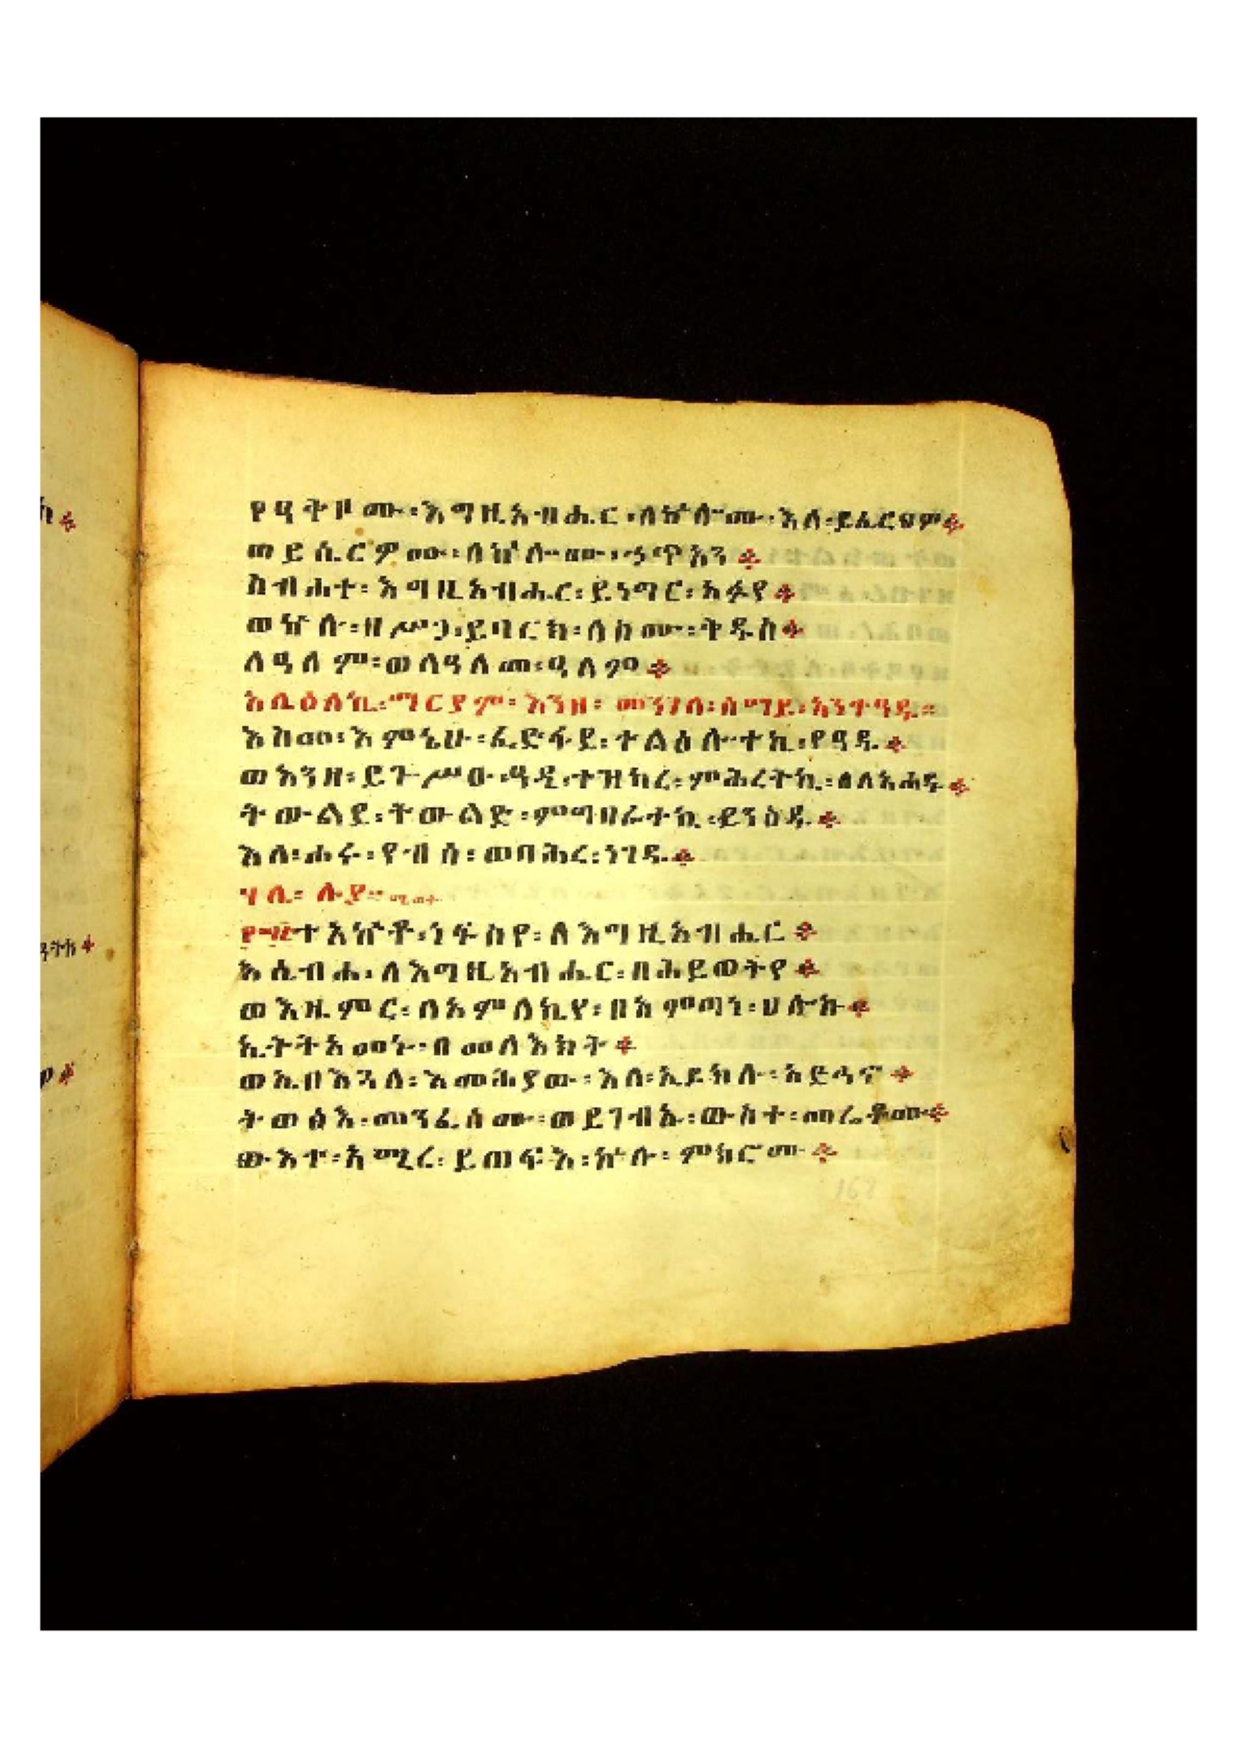 የዓቅቦሙ፡እግዚአብሔር፡ለኵሎሙ፡እለ፡ይፈርህዎ፨
ወይሤርዎሙ፡ለኵሎሙ፡ኃጥአን፨
ስብሐተ፡እግዚአብሔር፡ይነግር፡አፉየ፨
ወኵሉ፡ዘሥጋ፡ይባርክ፡ለስሙ፡ቅዱስ፨
ለዓለም፡ወለዓለመ፡ዓለም፨
አሌዕለኪ፡ማርያም፡እንዘ፡መንገለ፡ሰማይ፡አንቀዓዱ።
እስመ፡እምኔሁ፡ፈድፋደ፡ተልዕሎተኪ፡የዓዱ፨
ወእንዘ፡ይጉሥዑ፡ዓዲ፡ተዝካረ፡ምሕረትኪ፡ለለአሐዱ፨
ትውልደ፡ትውልድ፡ምግባራተኪ፡ይንዕዱ፨
እለ፡ሐሩ፡የብሰ፡ወባሕረ፡ነገዱ፨
ሃሌ፡ ሉያ።
፻፵፭ተአኵቶ፡ነፍስየ፡ለእግዚአብሔር፨
እሴብሖ፡ለእግዚአብሔር፡በሕይወትየ፨
ወእዜምር፡ለአምላኪየ፡በአምጣነ፡ሀሎኩ፨
ኢትትአመኑ፡በመላእክት፨
ወኢበእጓለ፡እመሕያው፡እለ፡ኢይክሉ፡አድኅኖ፨
ትወፅእ፡መንፈሶሙ፡ወይገብኡ፡ውስተ፡መሬቶሙ፨
ውእተ፡አሚረ፡ይጠፍእ፡ኵሉ፡ምክሮሙ፨
168